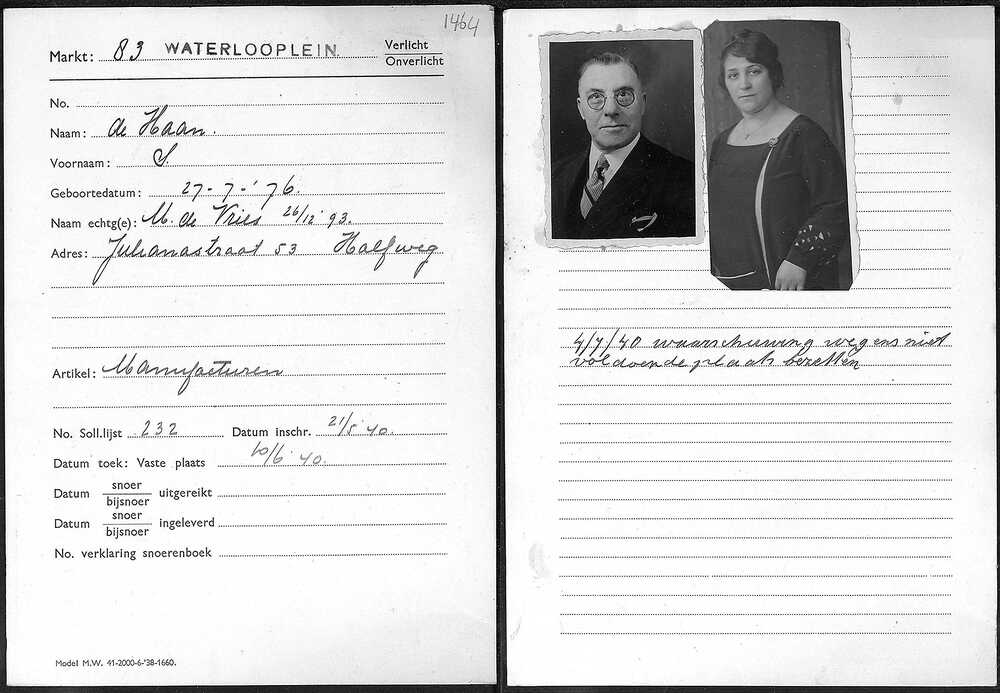 1464
Markt: 83 WATERLOOPLEIN. Verlicht
Onverlicht
No.
Naam: de Haan.
Voornaam: S.
Geboortedatum: 27-7-'76.
Naam echtg(e): M. de Vries 26/12 '93.
Adres: Julianastraat 53 Halfweg
Artikel: Manufacturen
No. Soll.lijst 232 Datum inschr. 21/5 '40.
Datum toek: Vaste plaats 10/6 '40.
Datum snoer uitgereikt
bijsnoer
Datum snoer ingeleverd
bijsnoer
No. verklaring snoerenboek
Model M.W. 41-2000-6-'38-1660.
4/7/40 waarschuwing wegens niet
voldoende plaats bezetten